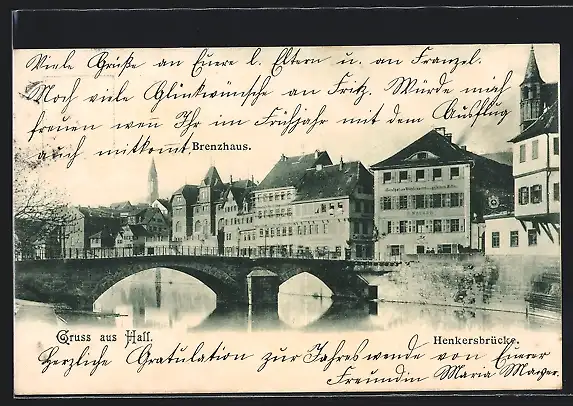 Viele Grüße an Euere l. Eltern u. an Franzel.
Noch viele Glückwünsche an Fritz. Würde mich
freuen wen̄ Ihr im Frühjahr mit dem Ausflug
auch mitkom̄t.
Brenzhaus.
Gruss aus Hall.
Henkersbrücke.
Herzliche Gratulation zur Jahreswende von Euerer
Freundin Maria Mayer.